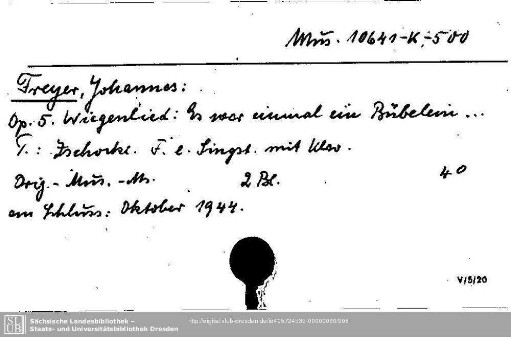 Mus. 10641-K,-500
Freyer, Johannes:
Op. 5. Wiegenlied: Es war einmal ein Bübelein ...
T.: Zschocke. F. e. Singst. mit Klav.
Orig.-Mus.-Ms. 2 Bl. 4°
am Schluss: Oktober 1944.
V/5/20
SLUB
Sächsische Landesbibliothek –
Staats- und Universitätsbibliothek Dresden